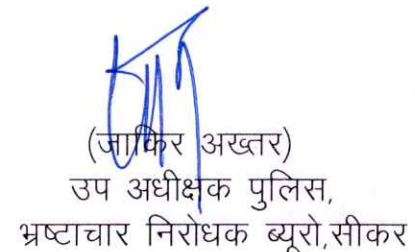 (जाकिर अख्तर)
उप अधीक्षक पुलिस,
भ्रष्टाचार निरोधक ब्यूरो,सीकर